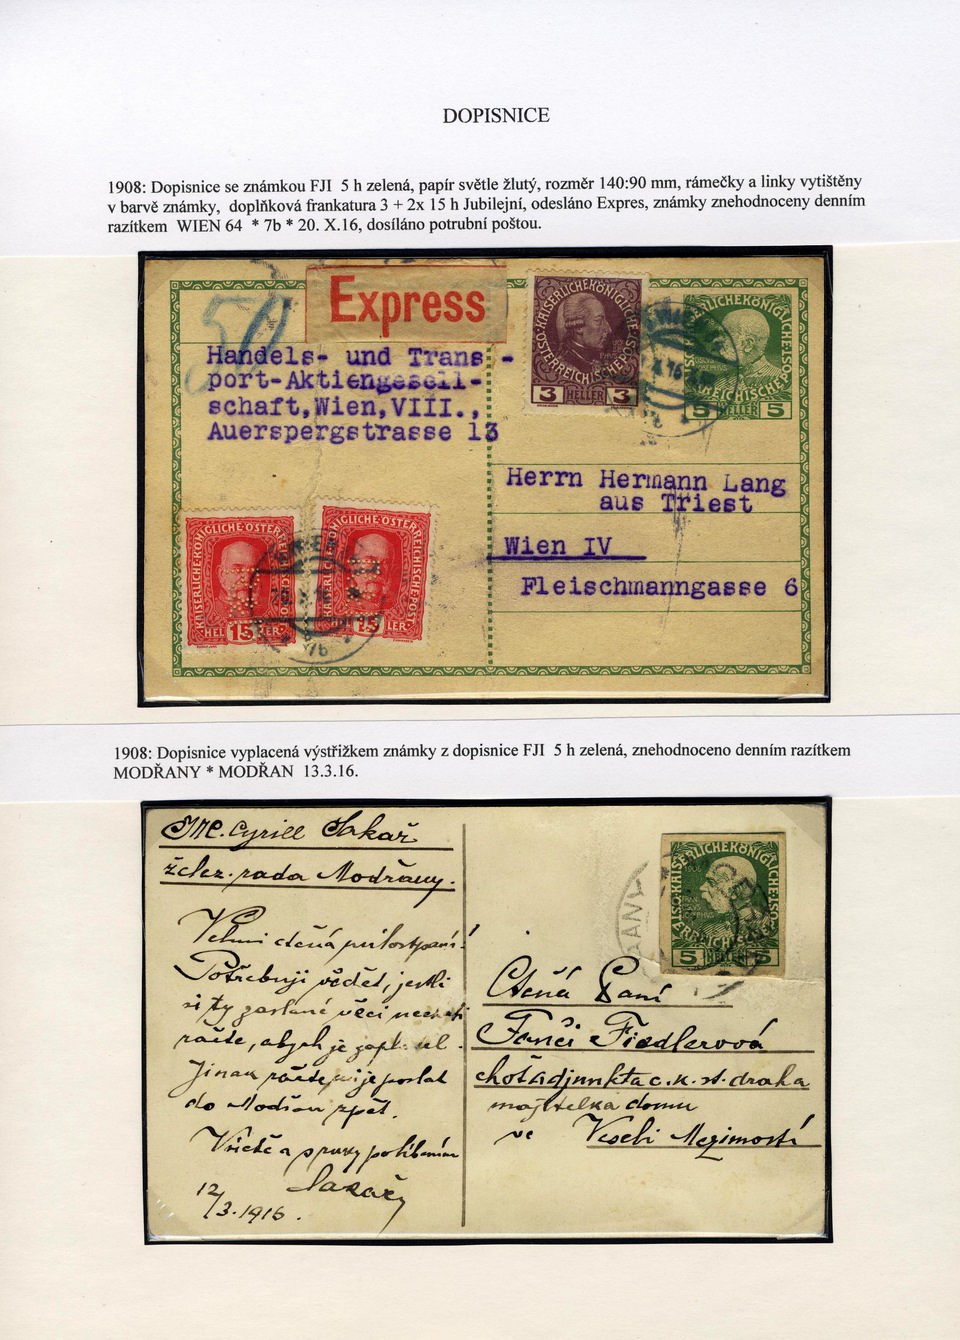 DOPISNICE
1908: Dopisnice se známkou FJI 5 h zelená, papír světle žlutý, rozměr 140:90 mm, rámečky a linky vytištěny
v barvě známky, doplňková frankatura 3 + 2x 15 h Jubilejní, odesláno Expres, známky znehodnoceny denním
razítkem WIEN 64 * 7b * 20. X.16, dosíláno potrubní poštou.
50
Express
Handels- und Trans -
port-Aktiengesell-
schaft,Wien,VIII.,
Auerspergstrasse 13
3 HELLER 3
5 HELLER 5
Herrn Hermann Lang
aus Triest
Wien IV
Fleischmanngasse 6
KAISERLICHE KÖNIGLICHE ÖSTERREICHISCHE POST
15
15
7b
1908: Dopisnice vyplacená výstřižkem známky z dopisnice FJI 5 h zelená, znehodnoceno denním razítkem
MODŘANY * MODŘAN 13.3.16.
Cyrill Sakař
želez. rada Modřany.
Velmi ctěná
Potřebuji vědět, jestli
si ty zaslané věci
račte, abych je
Jinak račte mi je poslat
do Modřan zpět.
V úctě a
Sakař
12/3.1916.
5 HELLER 5
Ctěná Paní
Fanči Fiedlerová
choť adjunkta c. k. st. draha
majitelka domu
ve Veselí Mezimostí